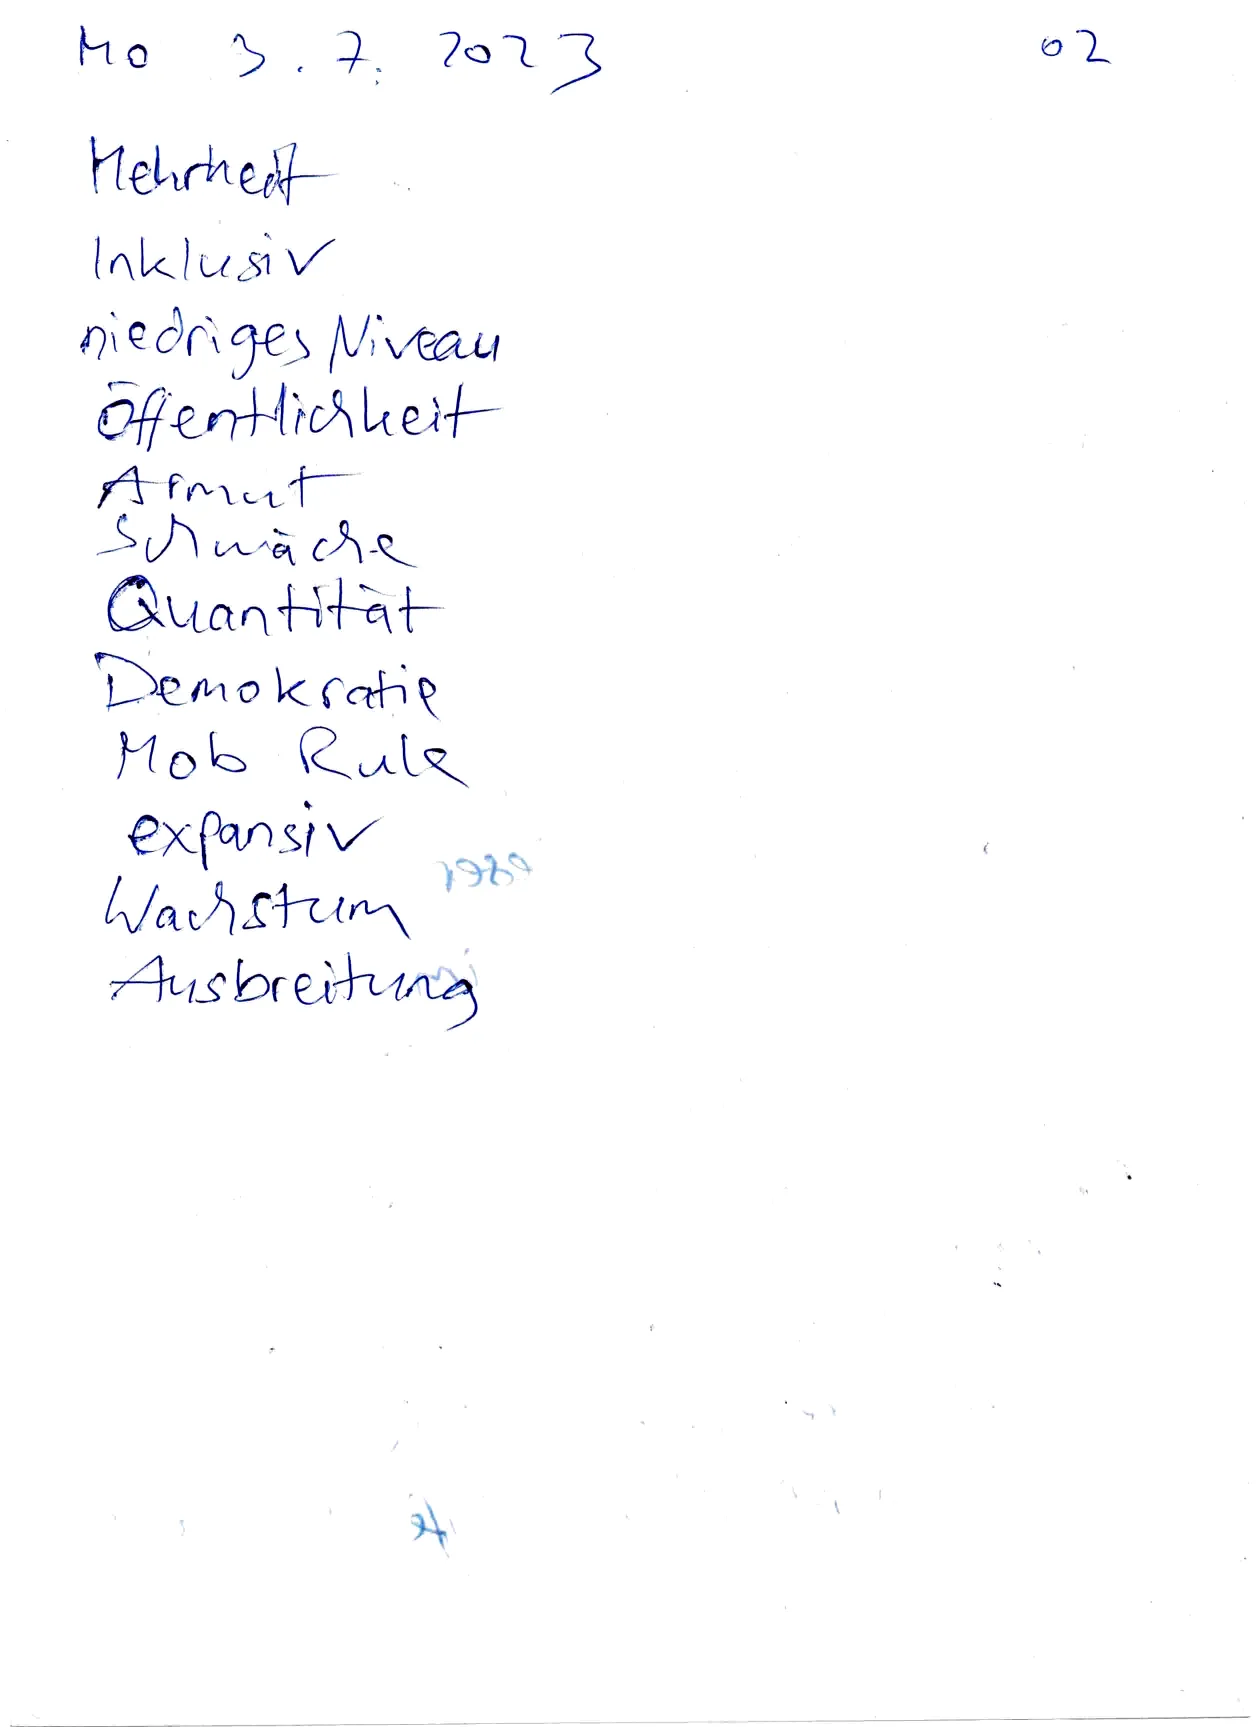 Mo 3. 7. 2023 02
Mehrheit
Inklusiv
niedriges Niveau
Öffentlichkeit
Armut
Schwäche
Quantität
Demokratie
Mob Rule
expansiv
Wachstum
Ausbreitung